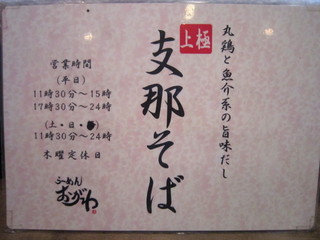 丸鶏と魚介系の旨味だし
上極
支那そば
営業時間
(平日)
11時30分～15時
17時30分～24時
(土・日・)
11時30分～24時
木曜定休日
らーめん
おがわ